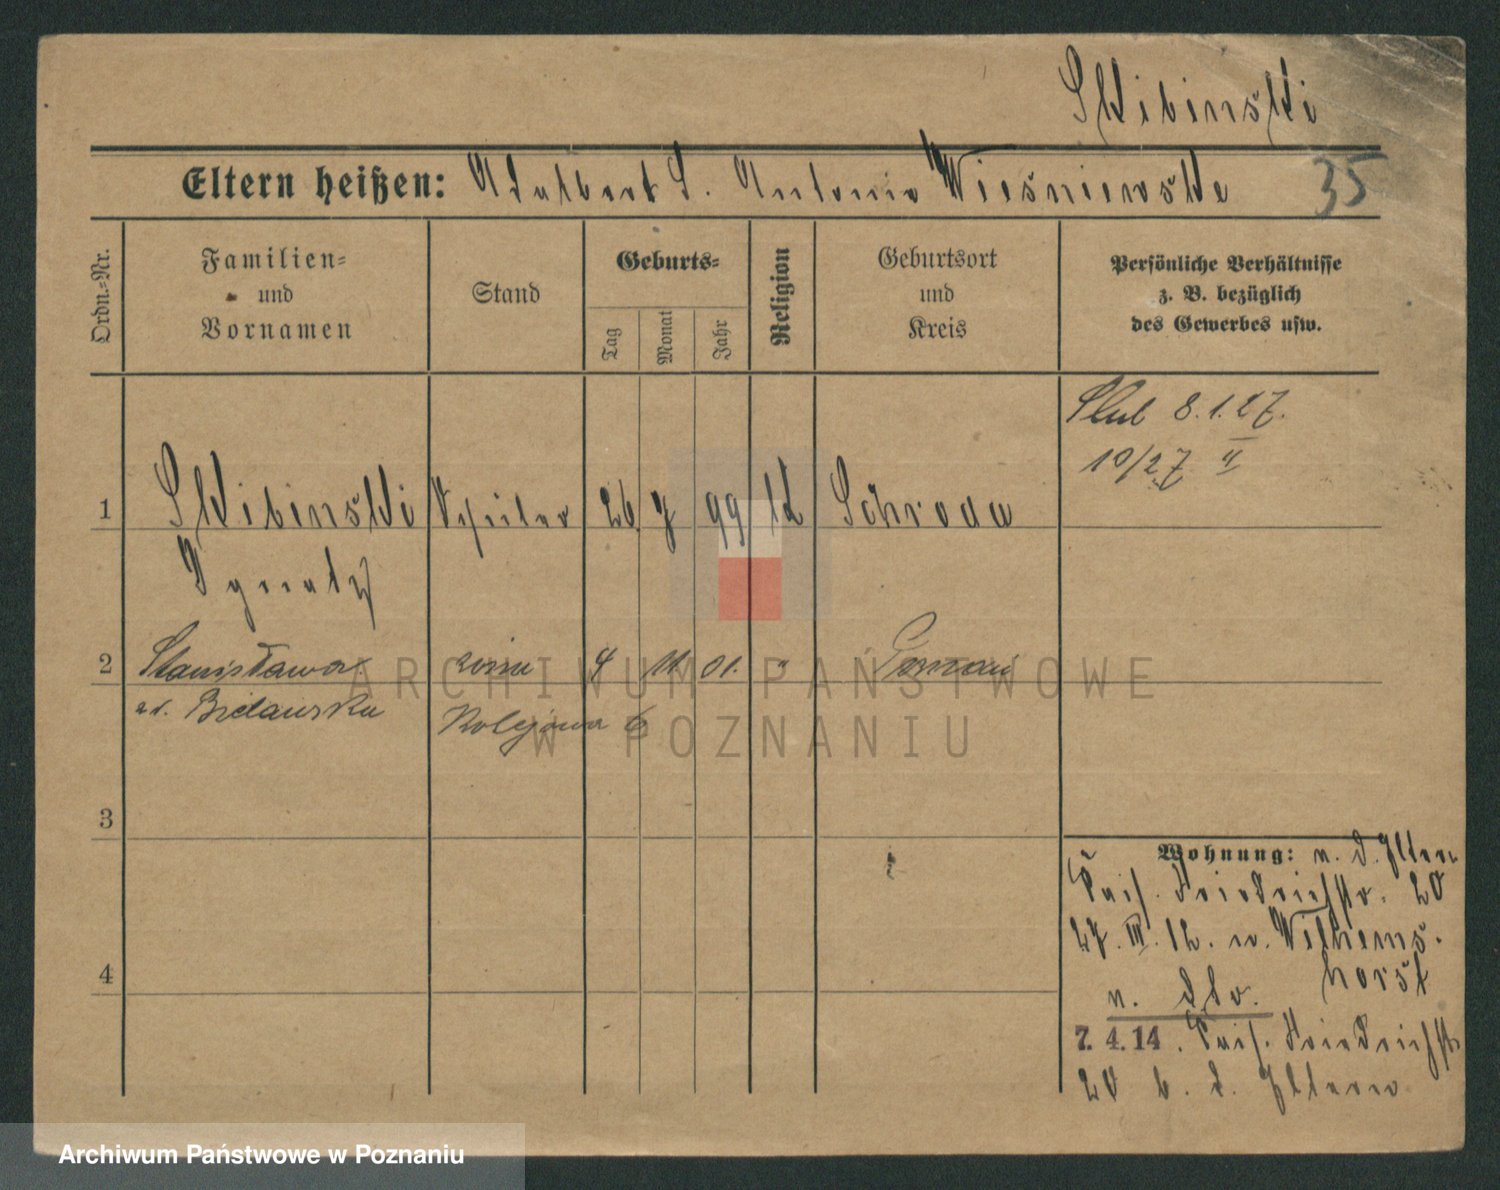 Skibinski
Eltern heißen: Adalbert S. Antonie Wiesniewske
35
Ordn.-Nr.
Familien-
und
Vornamen
Stand
Geburts-
Tag
Monat
Jahr
Religion
Geburtsort
und
Kreis
Persönliche Verhältnisse
z. B. bezüglich
des Gewerbes usw.
Slub 8.1.27.
10/27 II
1 Skibinski Schüler 26. 7 99 kt Schroda
Ignatz
2 Stanisława 4 11 01. " Poznań
Bielawska Kolejowa 6
3
4
Wohnung: n. d. Eltern
Kais. Friedrichstr. 20
27. III. 12. n. Wilhelms-
horst
7. 4. 14. Kais. Friedrichstr
20 b. d. Eltern
ARCHIWUM PAŃSTWOWE
W POZNANIU
Archiwum Państwowe w Poznaniu